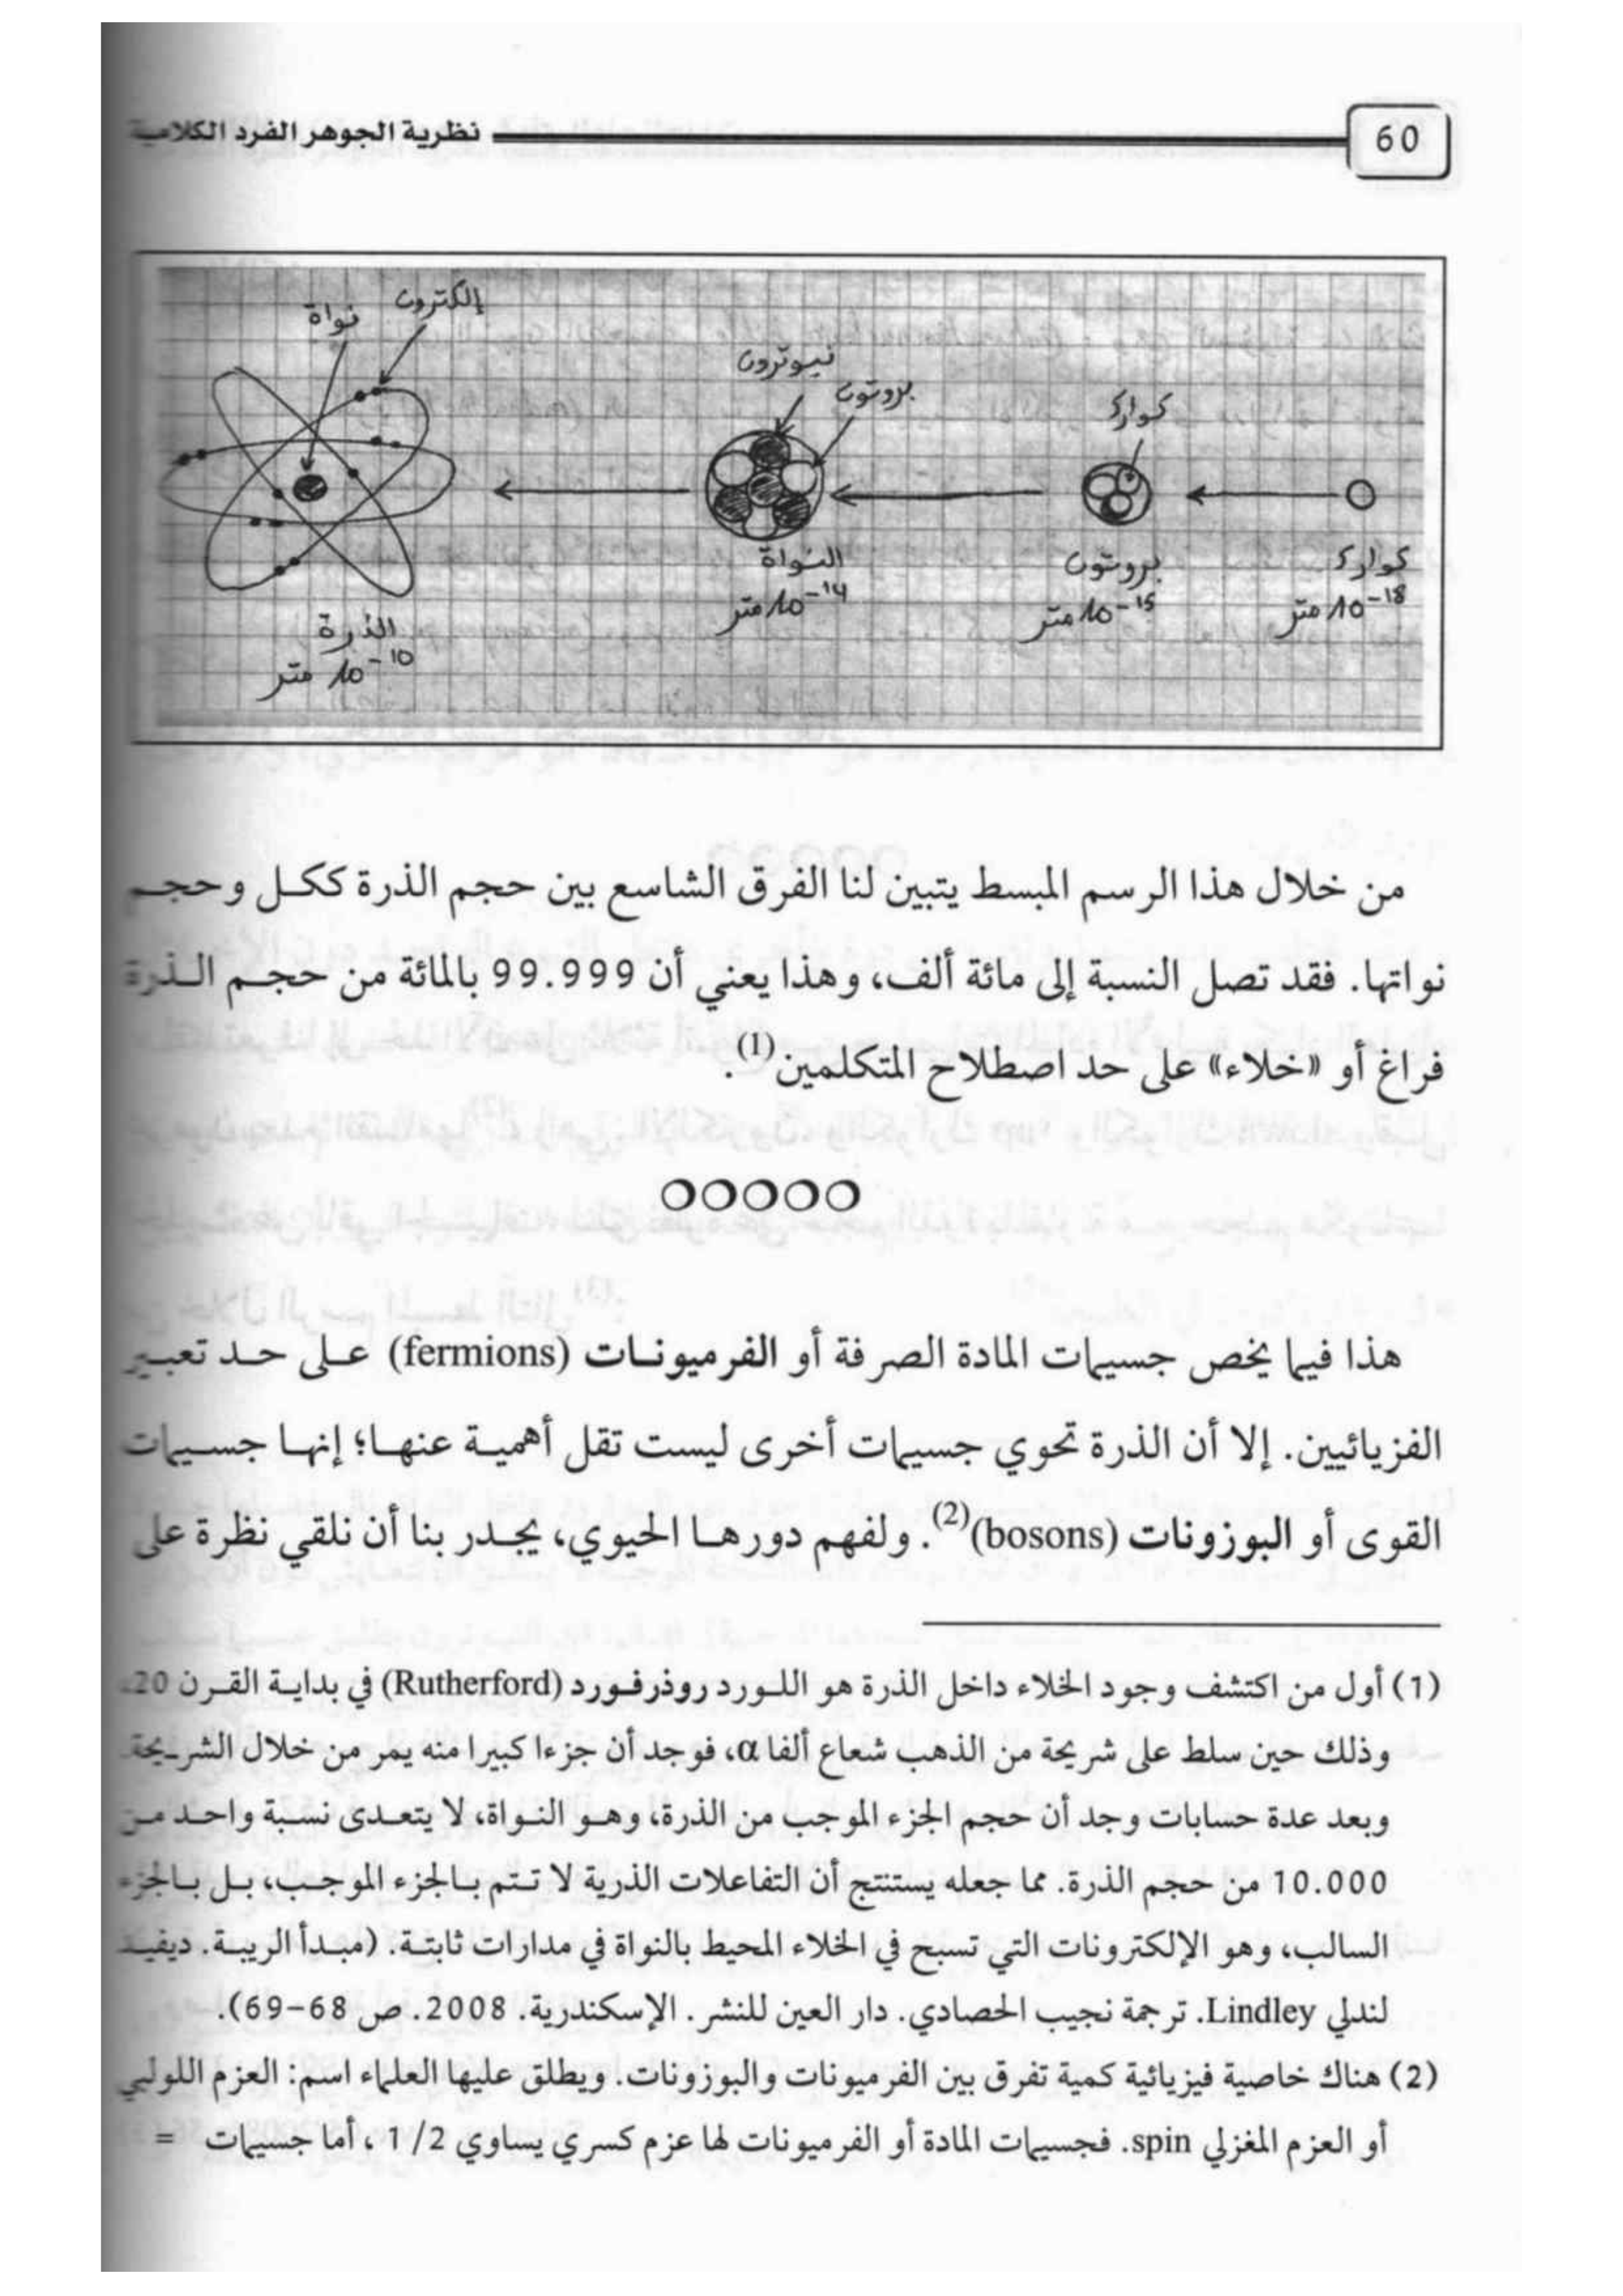 60
نظرية الجوهر الفرد الكلامية
إلكترون
نواة
نيوترون
بروتون
كوارك
كوارك
10⁻¹⁸ متر
بروتون
10⁻¹⁵ متر
النواة
10⁻¹⁴ متر
الذرة
10⁻¹⁰ متر
من خلال هذا الرسم المبسط يتبين لنا الفرق الشاسع بين حجم الذرة ككل وحجم
نواتها. فقد تصل النسبة إلى مائة ألف، وهذا يعني أن 99.999 بالمائة من حجم الذرة
فراغ أو «خلاء» على حد اصطلاح المتكلمين(1).
هذا فيما يخص جسيمات المادة الصرفة أو الفرميونات (fermions) على حد تعبير
الفزيائيين. إلا أن الذرة تحوي جسيمات أخرى ليست تقل أهمية عنها؛ إنها جسيمات
القوى أو البوزونات (bosons)(2). ولفهم دورها الحيوي، يجدر بنا أن نلقي نظرة على
(1) أول من اكتشف وجود الخلاء داخل الذرة هو اللورد روذرفورد (Rutherford) في بداية القرن 20،
وذلك حين سلط على شريحة من الذهب شعاع ألفا α، فوجد أن جزءا كبيرا منه يمر من خلال الشريحة.
وبعد عدة حسابات وجد أن حجم الجزء الموجب من الذرة، وهو النواة، لا يتعدى نسبة واحد من
10.000 من حجم الذرة. مما جعله يستنتج أن التفاعلات الذرية لا تتم بالجزء الموجب، بل بالجزء
السالب، وهو الإلكترونات التي تسبح في الخلاء المحيط بالنواة في مدارات ثابتة. (مبدأ الريبة. ديفيد
لندلي Lindley. ترجمة نجيب الحصادي. دار العين للنشر. الإسكندرية. 2008. ص 68-69).
(2) هناك خاصية فيزيائية كمية تفرق بين الفرميونات والبوزونات. ويطلق عليها العلماء اسم: العزم اللولبي
أو العزم المغزلي spin. فجسيمات المادة أو الفرميونات لها عزم كسري يساوي 1/2، أما جسيمات =